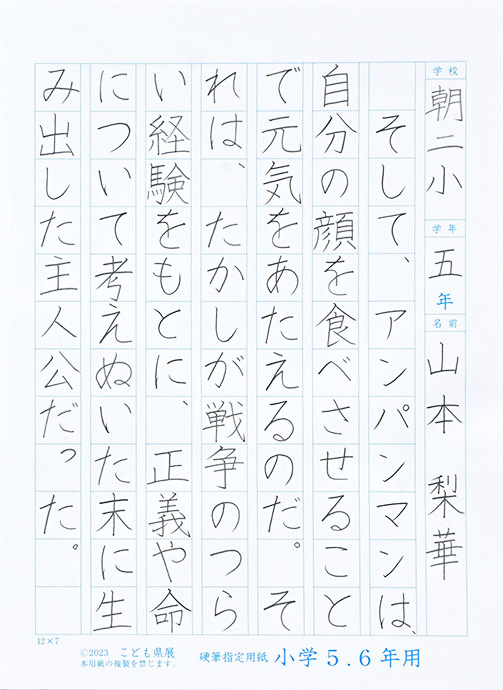 学校
朝二小
学年
五年
名前
山本 梨華
そして、アンパンマンは、
自分の顔を食べさせること
で元気をあたえるのだ。そ
れは、たかしが戦争のつら
い経験をもとに、正義や命
について考えぬいた末に生
み出した主人公だった。
12×7
©2023 こども県展
本用紙の複製を禁じます。
硬筆指定用紙 小学5.6年用